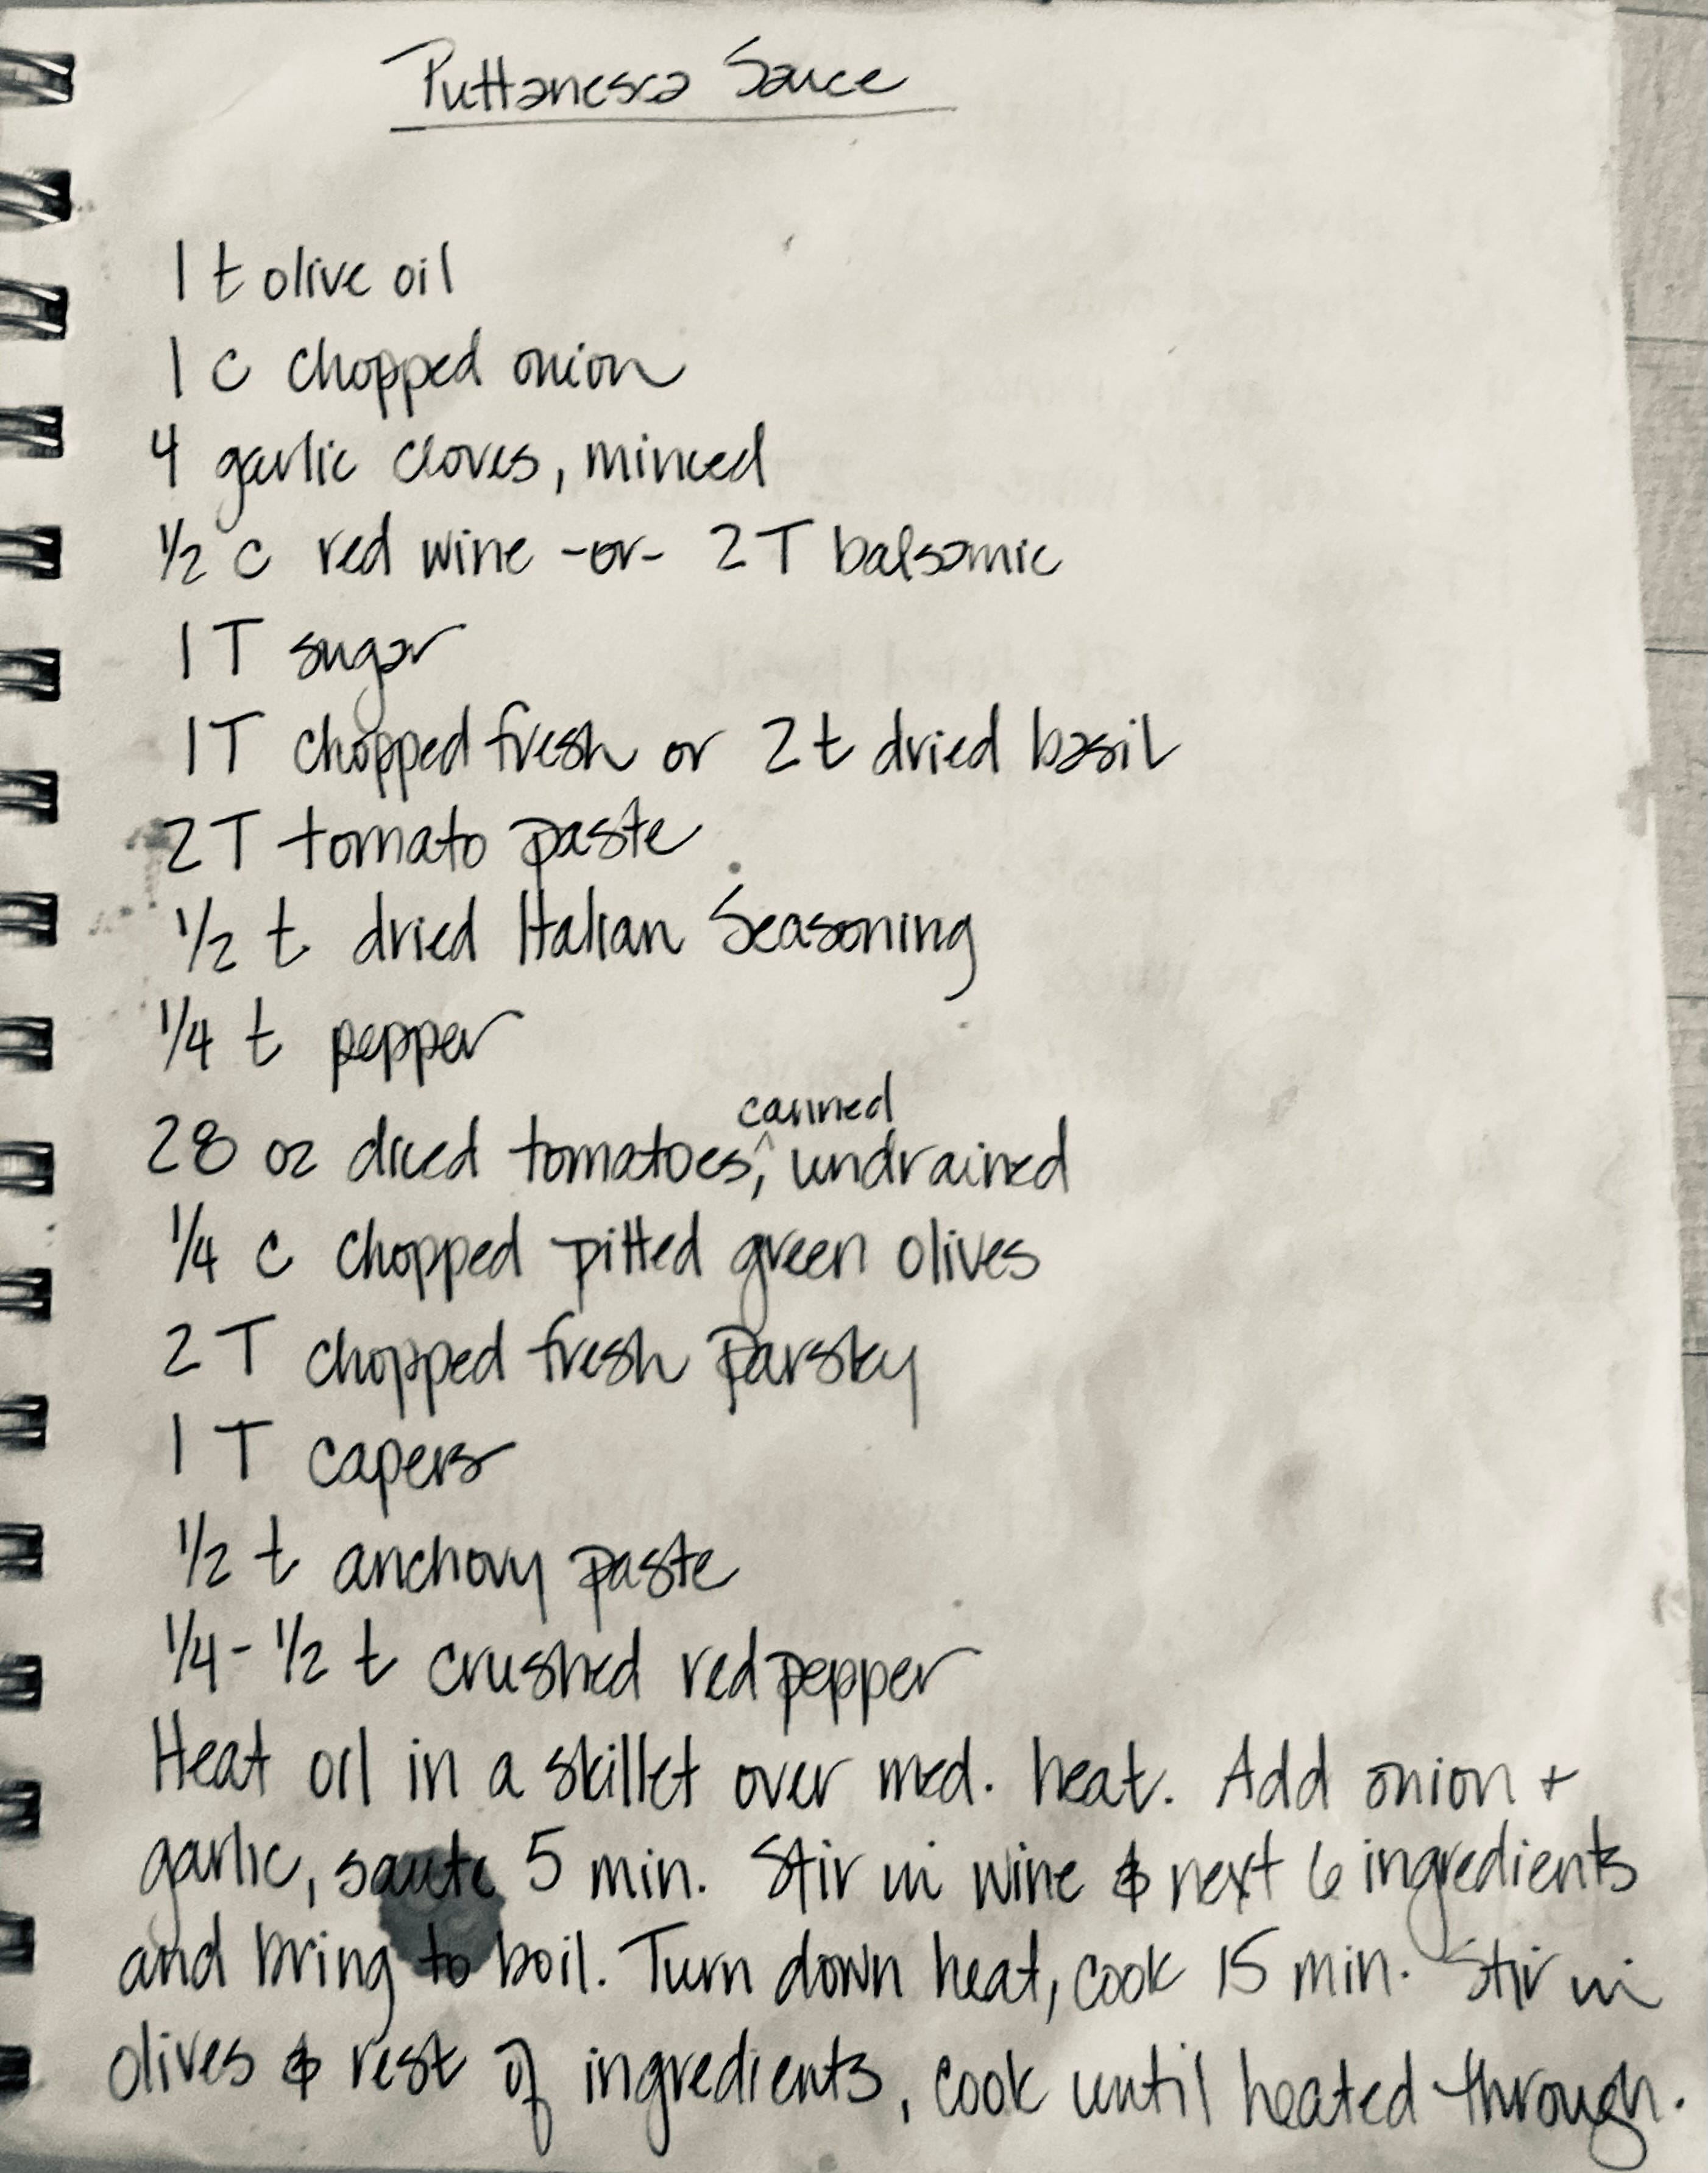 Puttanesca Sauce
1 t olive oil
1 c chopped onion
4 garlic cloves, minced
1/2 c red wine -or- 2 T balsamic
1 T sugar
1 T chopped fresh or 2 t dried basil
2 T tomato paste
1/2 t dried Italian Seasoning
1/4 t pepper
28 oz diced tomatoes, canned undrained
1/4 c chopped pitted green olives
2 T chopped fresh parsley
1 T capers
1/2 t anchovy paste
1/4 - 1/2 t crushed red pepper
Heat oil in a skillet over med. heat. Add onion +
garlic, saute 5 min. Stir in wine & next 6 ingredients
and bring to boil. Turn down heat, cook 15 min. Stir in
olives & rest of ingredients, cook until heated through.